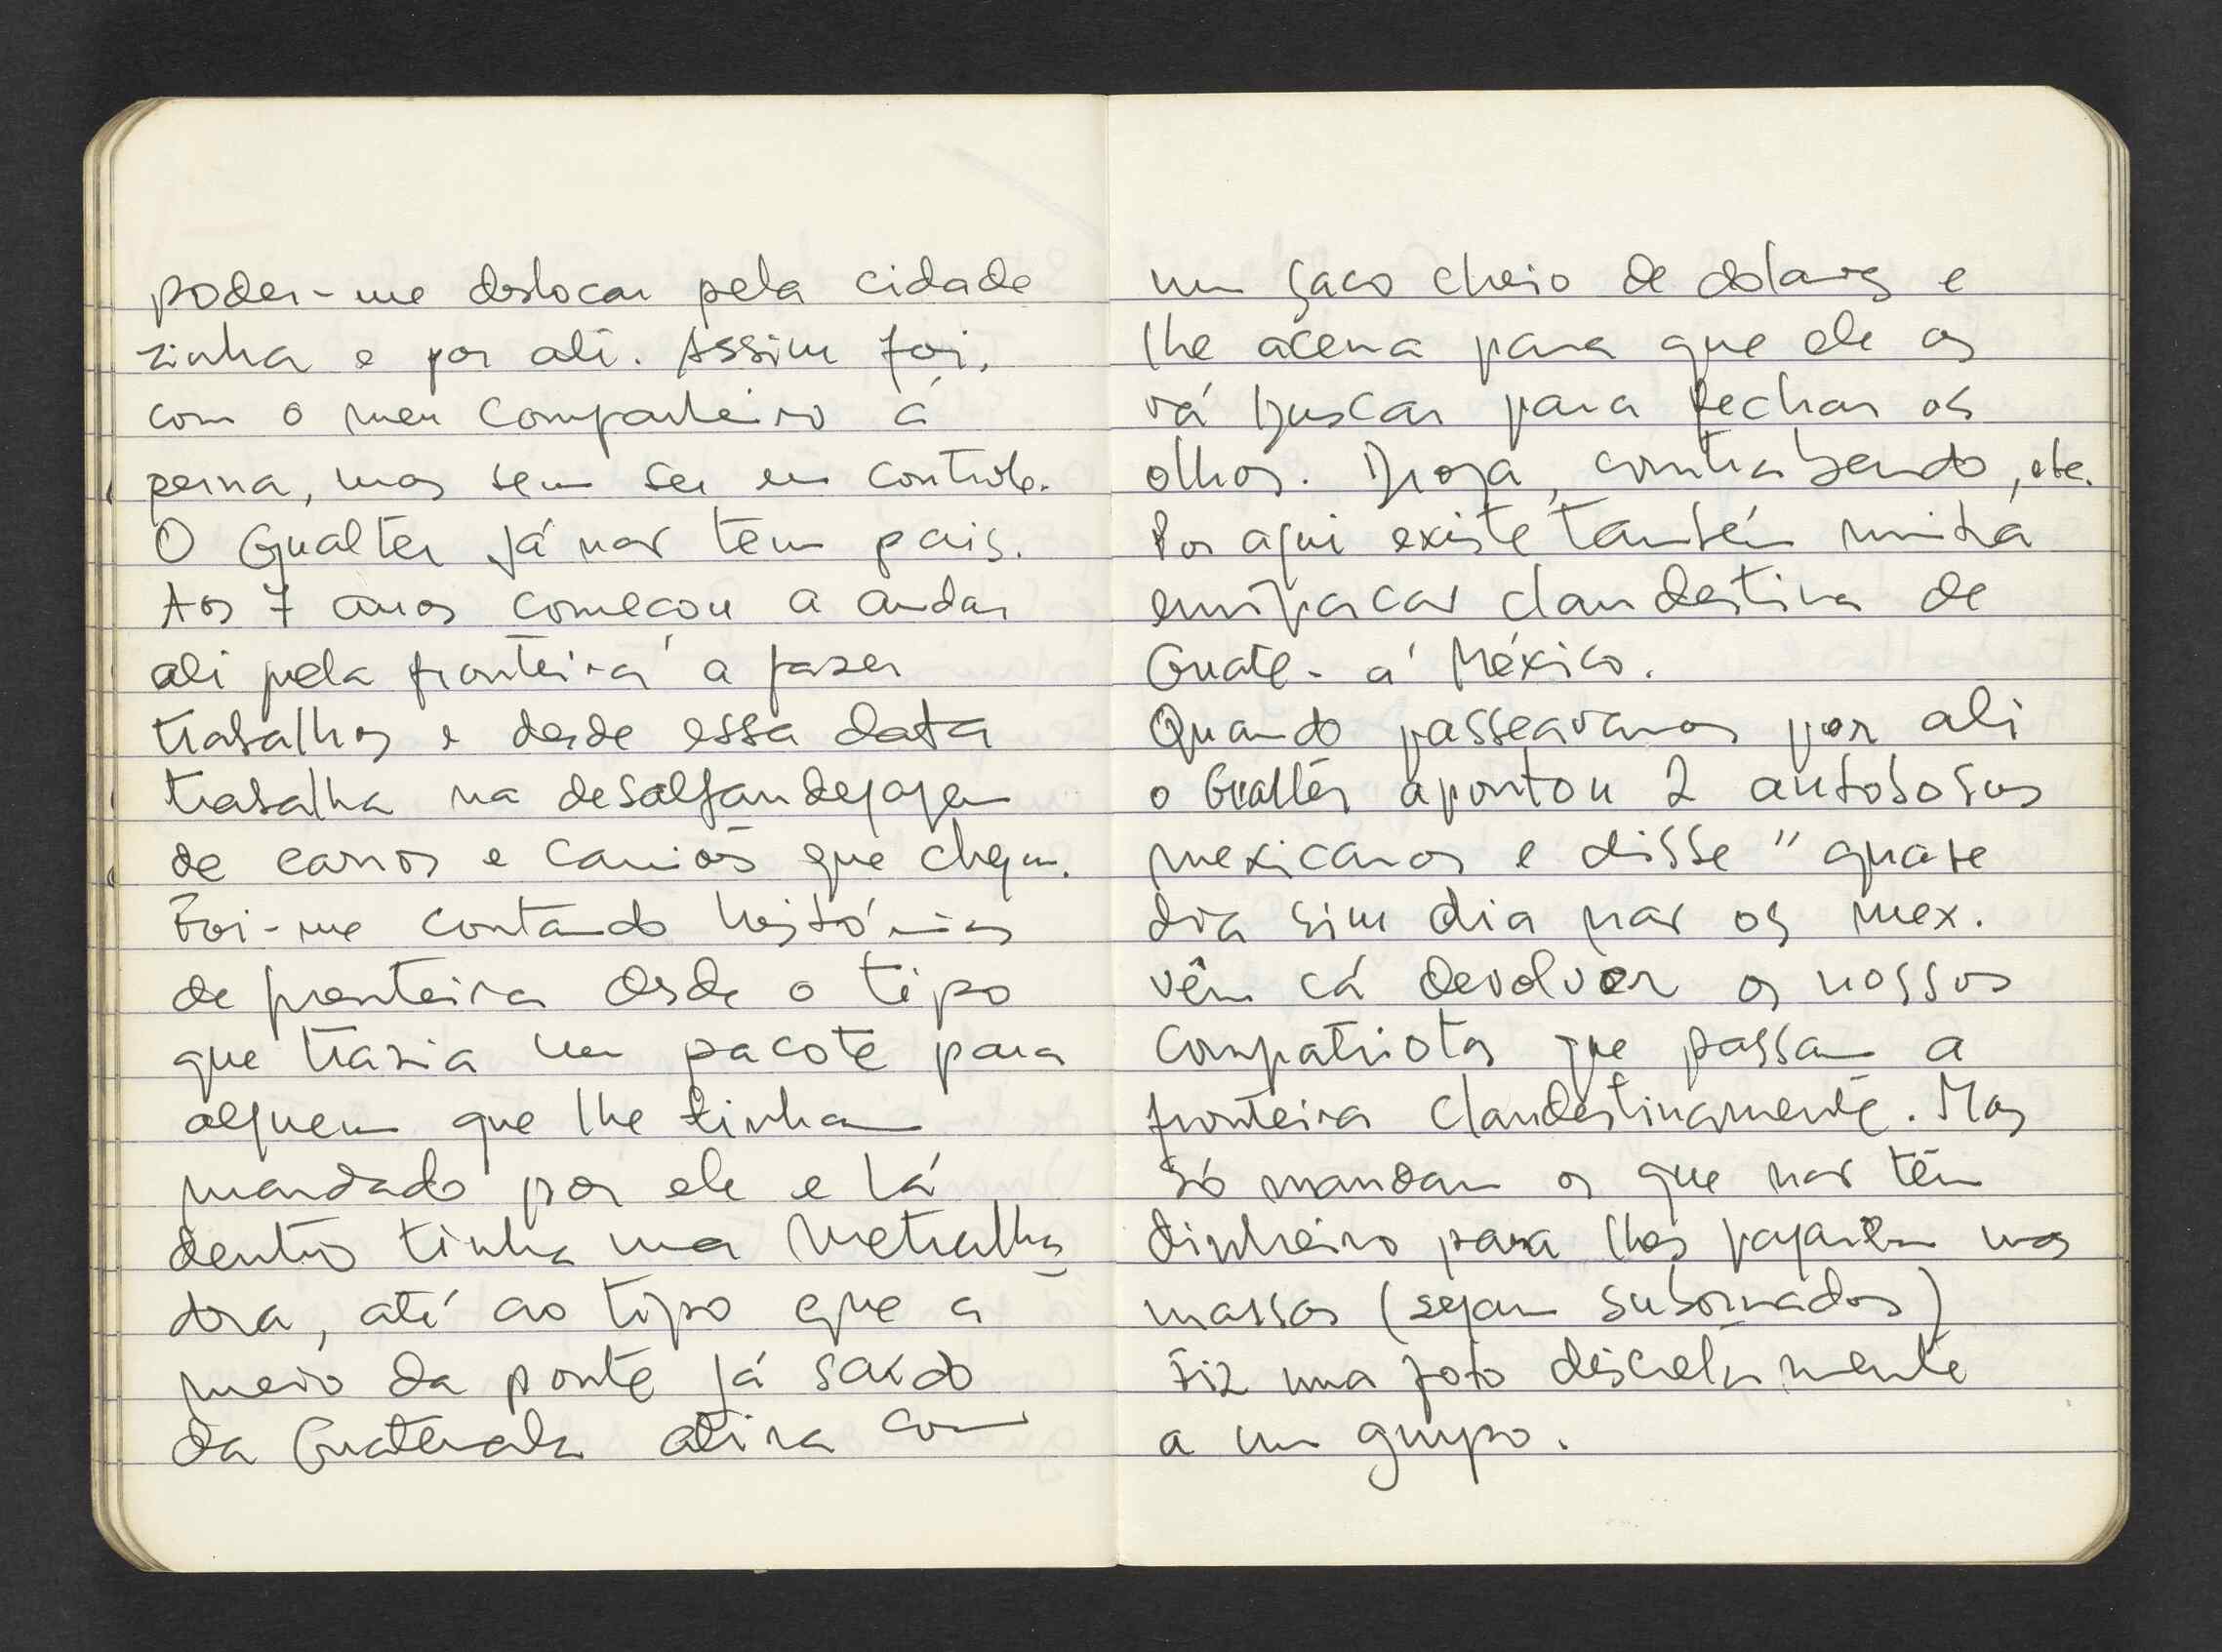 poder-me deslocar pela cidade
zinha e por ali. Assim foi.
com o meu companheiro à
perna, mas sem ser em controle.
O Gualter já não tem pais.
Aos 7 anos começou a andar
ali pela fronteira a fazer
trabalhos e desde essa data
trabalha na desalfandegagem
de carros e camiões que chegam.
Foi-me contando histórias
de fronteira desde o tipo
que trazia um pacote para
alguem que lhe tinham
mandado por ele e lá
dentro tinha uma metralha
dora, até ao tipo que a
meio da ponte já saido
da Guatemala atira com
um saco cheio de dolares e
lhe acena para que ele os
vá buscar para fechar os
olhos. Droga, contrabando, etc.
Por aqui existe também muita
emigração clandestina de
Guate- a México.
Quando passeavamos por ali
o Gualter apontou 2 autobosus
mexicanos e disse " quase
dia sim dia não os mex.
vêm cá devolver os nossos
compatriotas que passam a
fronteira clandestinamente. Mas
só mandam os que não têm
dinheiro para lhes pagarem umas
massas (sejam subornados)
Fiz uma foto discretamente
a um grupo.